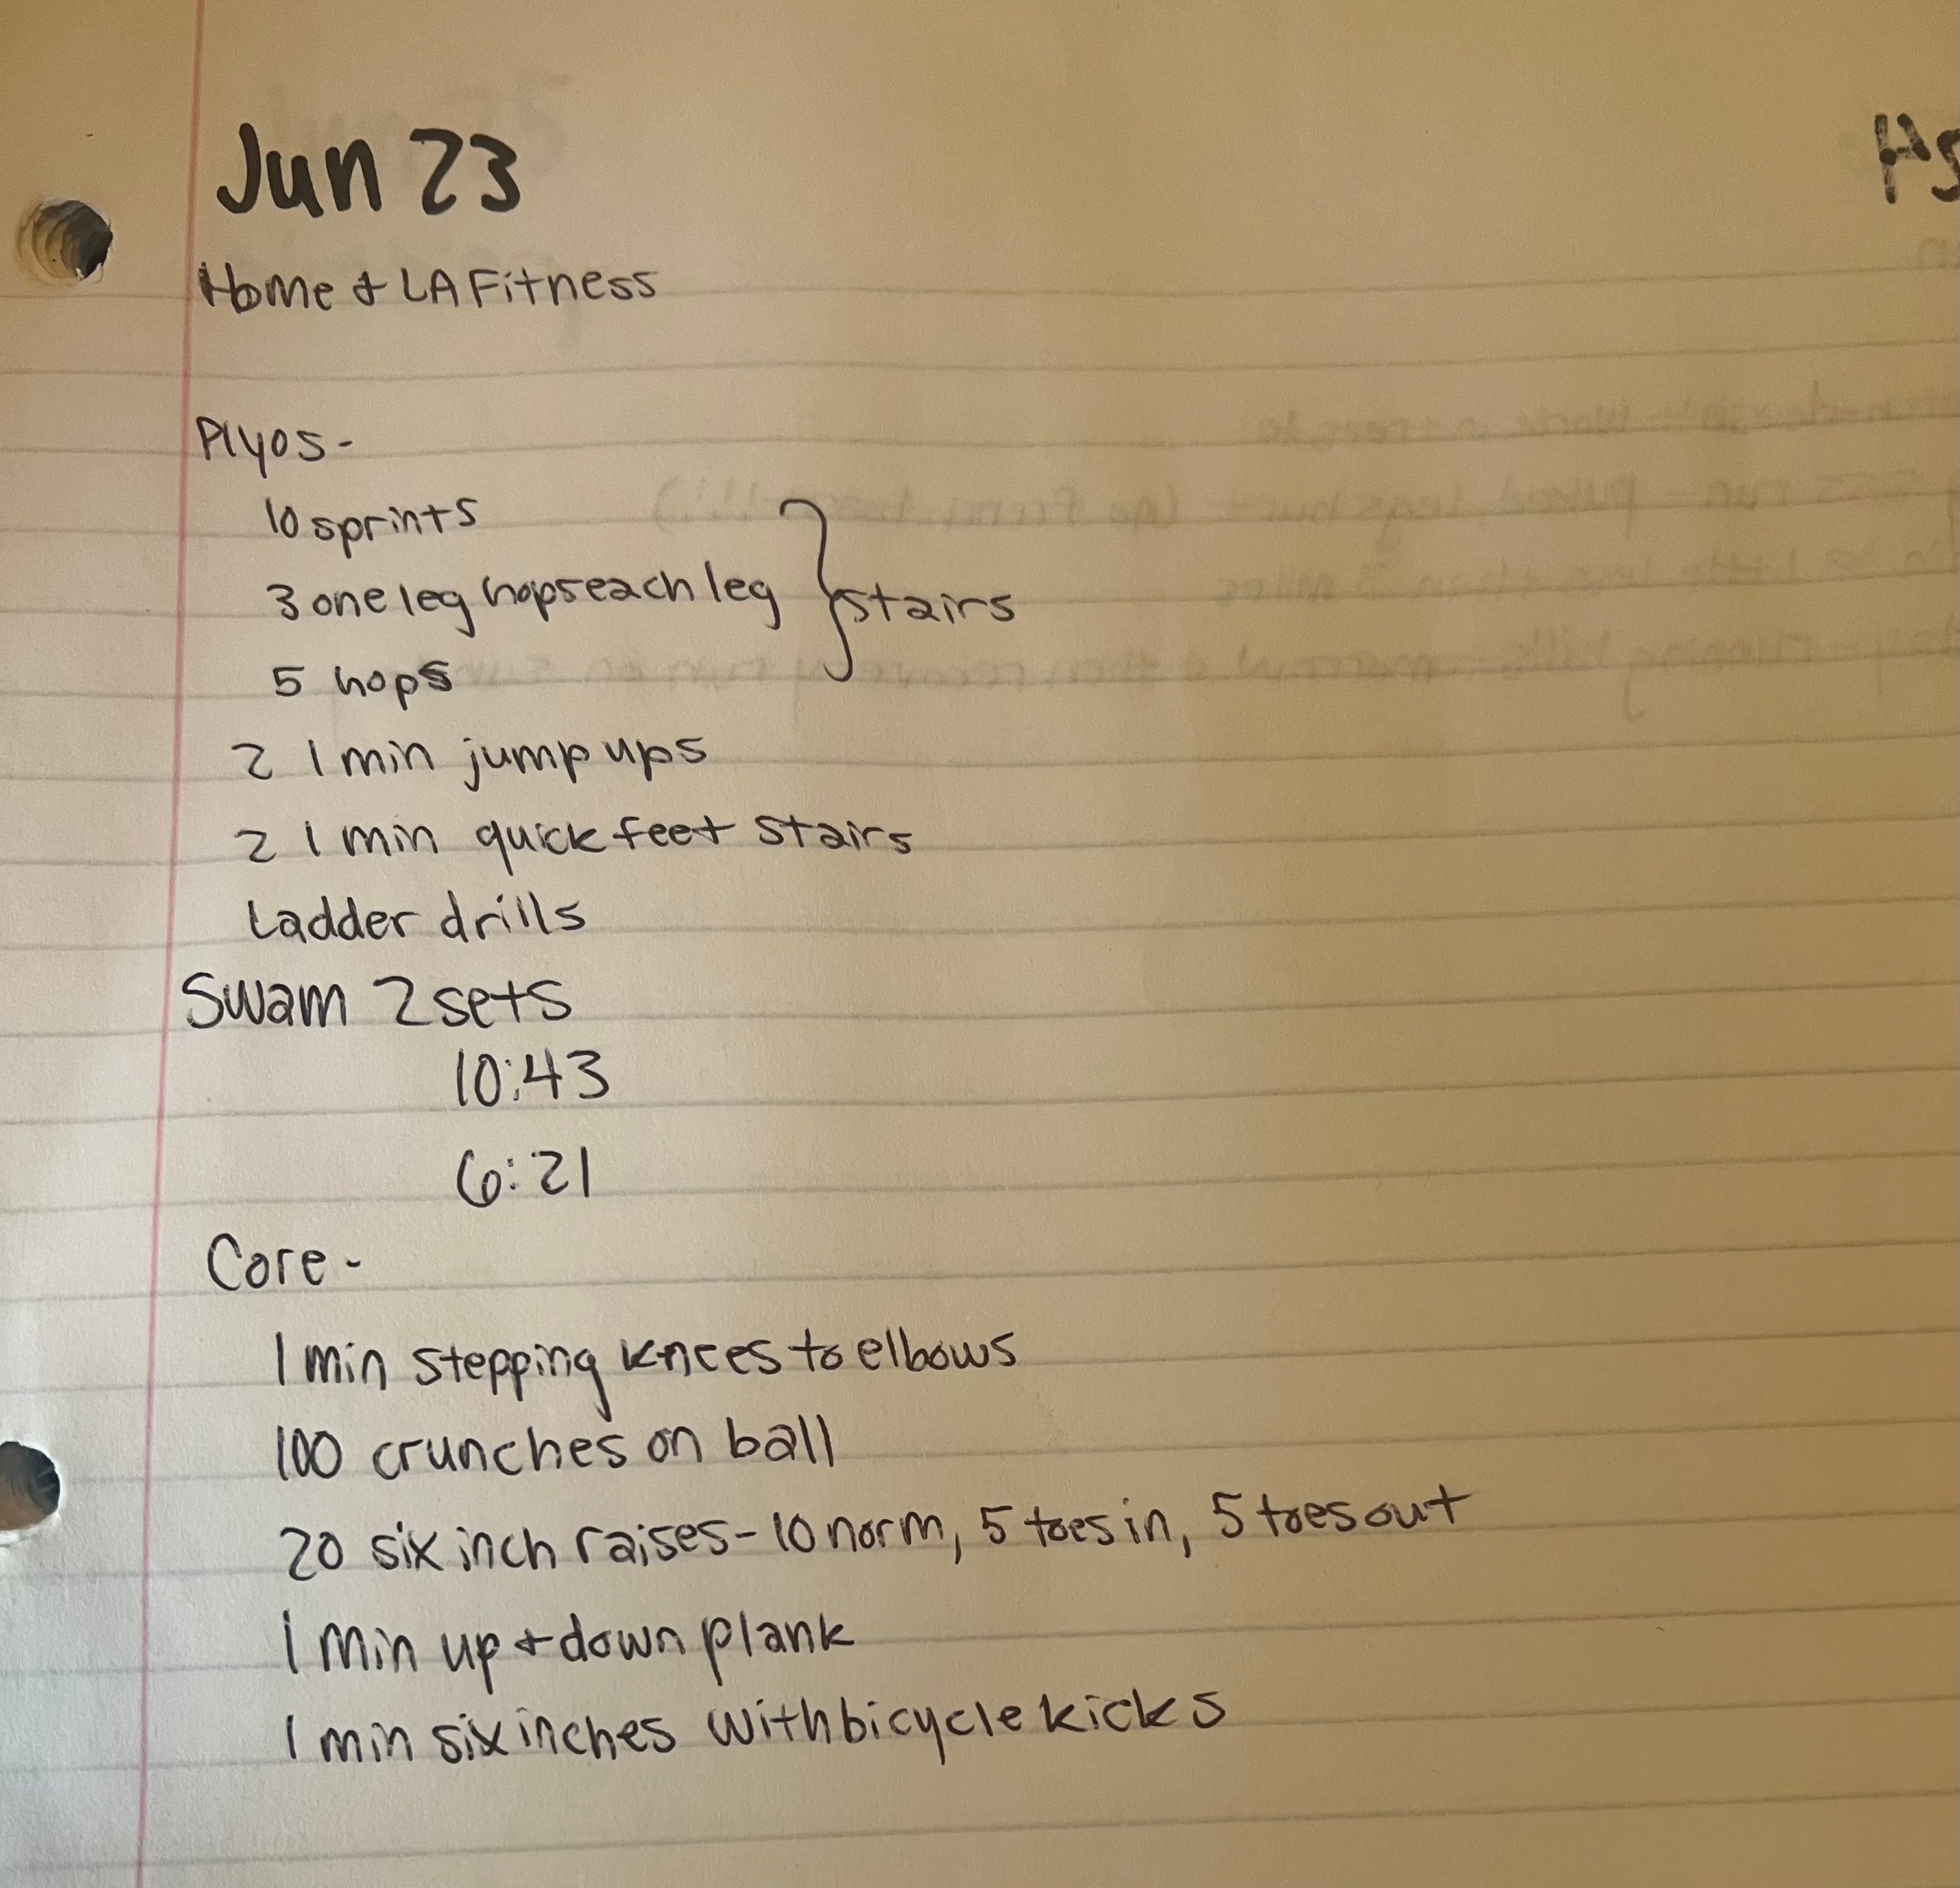 Jun 23
Home & LA Fitness
Plyos-
10 sprints
3 one leg hops each leg } stairs
5 hops
2 1 min jump ups
2 1 min quick feet stairs
Ladder drills
Swam 2 sets
10:43
6:21
Core-
1 min stepping knees to elbows
100 crunches on ball
20 six inch raises - 10 norm, 5 toes in, 5 toes out
1 min up & down plank
1 min six inches with bicycle kicks